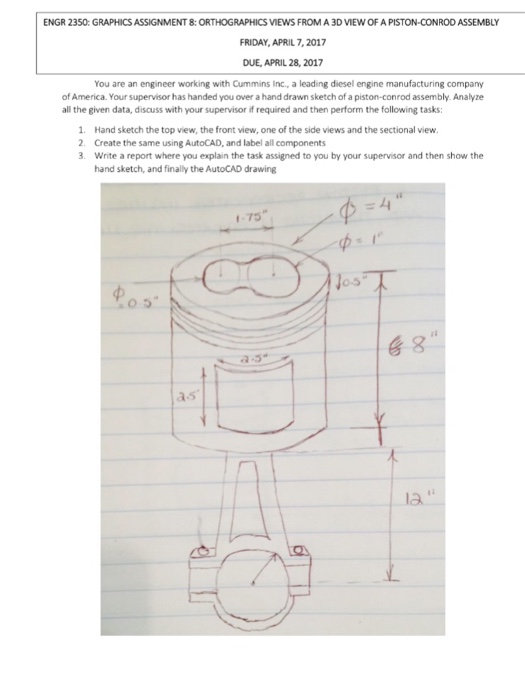 ENGR 2350: GRAPHICS ASSIGNMENT 8: ORTHOGRAPHICS VIEWS FROM A 3D VIEW OF A PISTON-CONROD ASSEMBLY
FRIDAY, APRIL 7, 2017
DUE, APRIL 28, 2017
You are an engineer working with Cummins Inc., a leading diesel engine manufacturing company
of America. Your supervisor has handed you over a hand drawn sketch of a piston-conrod assembly. Analyze
all the given data, discuss with your supervisor if required and then perform the following tasks:
1. Hand sketch the top view, the front view, one of the side views and the sectional view.
2. Create the same using AutoCAD, and label all components
3. Write a report where you explain the task assigned to you by your supervisor and then show the
hand sketch, and finally the AutoCAD drawing
ϕ = 4"
1.75"
ϕ = 1"
0.5"
ϕ 0.5"
8"
2.5"
2.5
12"